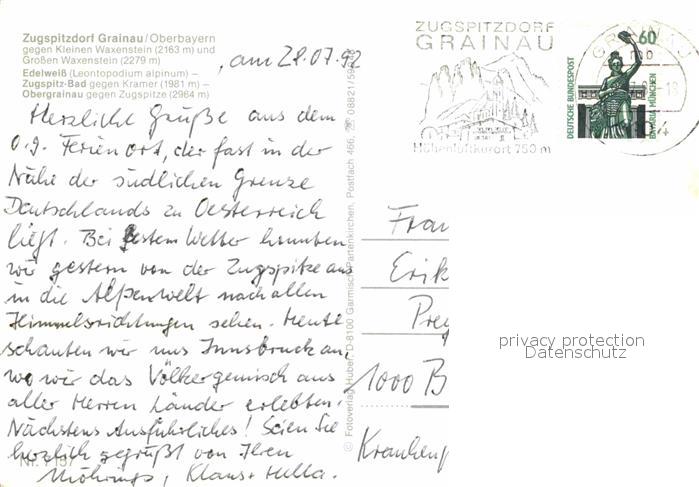 Zugspitzdorf Grainau/Oberbayern
gegen Kleinen Waxenstein (2163 m) und
Großen Waxenstein (2279 m)
Edelweiß (Leontopodium alpinum) –
Zugspitz-Bad gegen Kramer (1981 m) –
Obergrainau gegen Zugspitze (2964 m)
, am 28.07.92
Herzliche Grüße aus dem
o.g. Ferienort, der fast in der
Nähe der südlichen Grenze
Deutschlands zu Oesterreich
liegt. Bei bestem Wetter konnten
wir gestern von der Zugspitze aus
in die Alpenwelt nach allen
Himmelsrichtungen sehen. Heute
schauten wir uns Innsbruck an,
wo wir das Völkergemisch aus
aller Herren Länder erlebten.
Nächstens Ausführliches! Seien Sie
herzlich gegrüßt von Ihren
Möhrings, Klaus + Hella.
Nr. 7157
© Fotoverlag Huber, D-8100 Garmisch-Partenkirchen, Postfach 466,
ZUGSPITZDORF
GRAINAU
Höhenluftkurort 750 m
GRAINAU
60
DEUTSCHE BUNDESPOST
BAVARIA MÜNCHEN
Frau
Erik
Preg
1000 B
Krankenp
privacy protection
Datenschutz